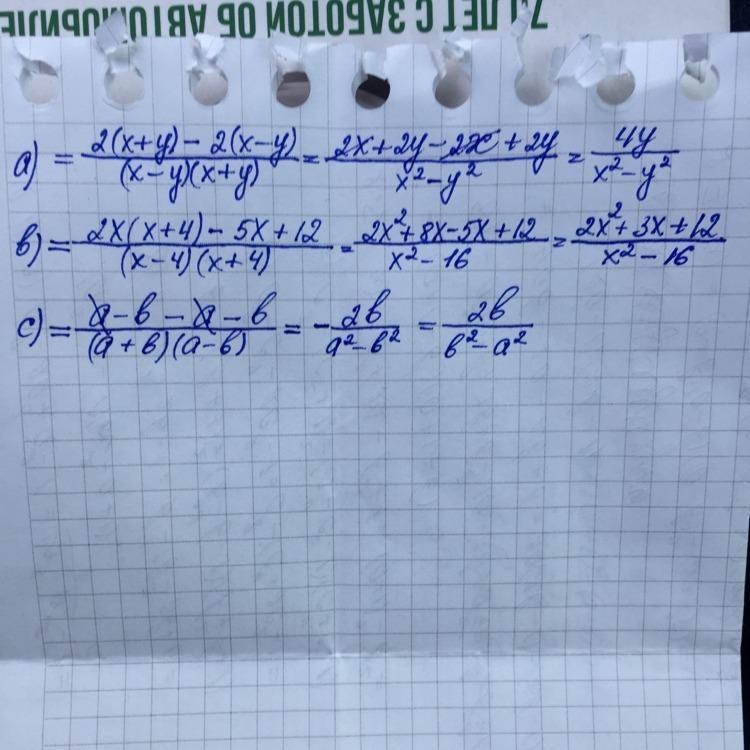 7 ЛЕТ С ЗАБОТОЙ ОБ АВТОМОБИЛЕ
a) = \frac{2(x+y) - 2(x-y)}{(x-y)(x+y)} = \frac{2x+2y-2x+2y}{x^2-y^2} = \frac{4y}{x^2-y^2}
в) = \frac{2x(x+4) - 5x+12}{(x-4)(x+4)} = \frac{2x^2+8x-5x+12}{x^2-16} = \frac{2x^2+3x+12}{x^2-16}
c) = \frac{a-в-a-в}{(a+в)(a-в)} = -\frac{2в}{a^2-в^2} = \frac{2в}{в^2-a^2}